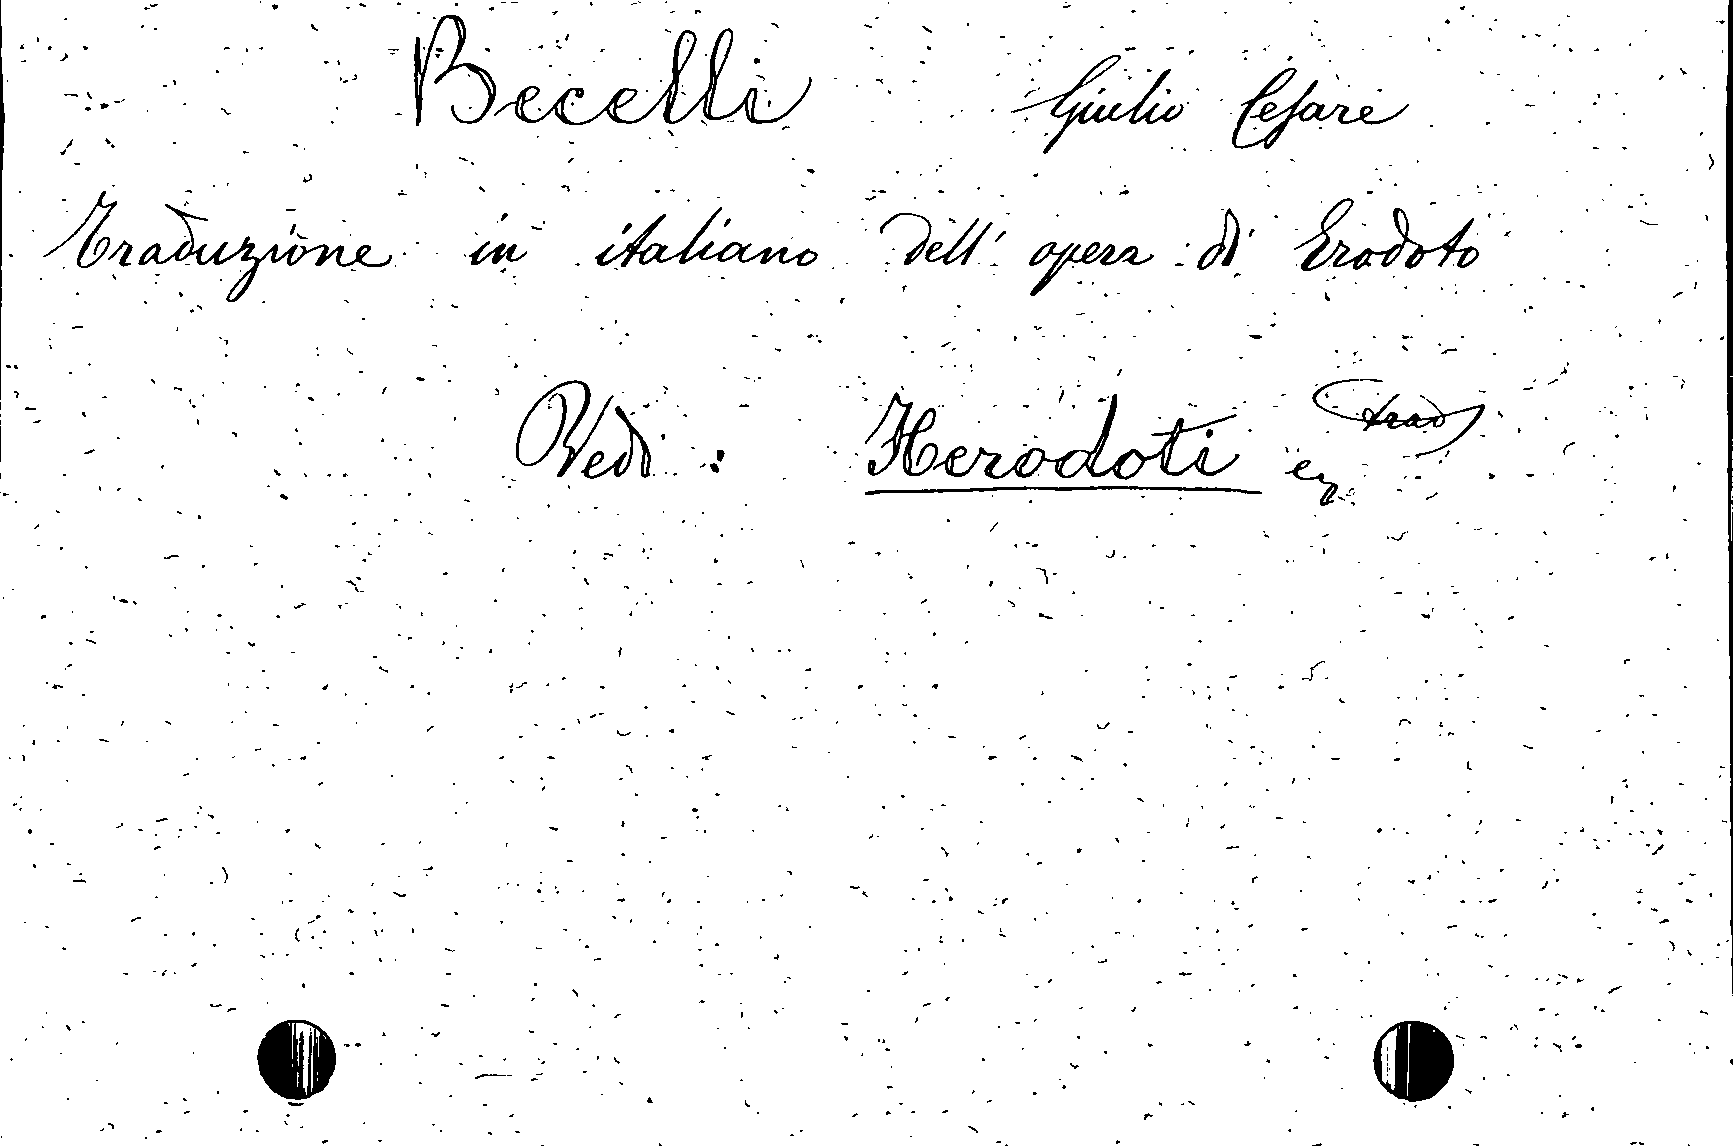 Becelli Giulio Cesare
Traduzione in italiano dell' opera di Erodoto
Vedi : Herodoti